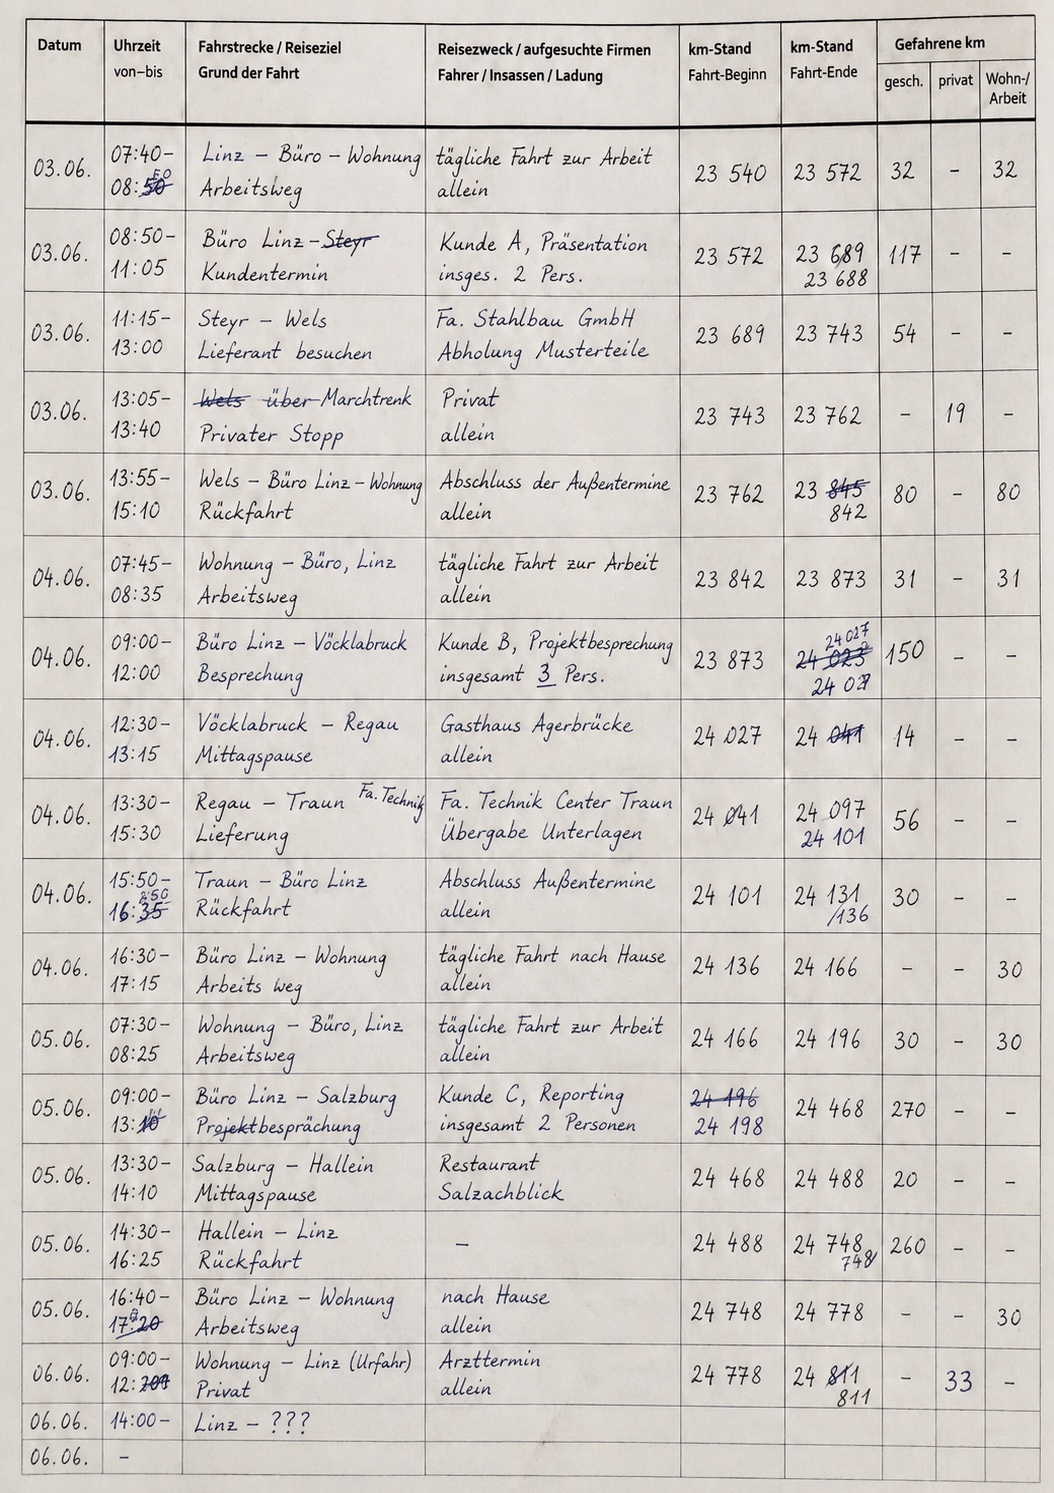 Datum Uhrzeit Fahrstrecke / Reiseziel Reisezweck / aufgesuchte Firmen km-Stand km-Stand Gefahrene km
von–bis Grund der Fahrt Fahrer / Insassen / Ladung Fahrt-Beginn Fahrt-Ende gesch. privat Wohn-/
Arbeit
03.06. 07:40– Linz – Büro – Wohnung tägliche Fahrt zur Arbeit 23 540 23 572 32 – 32
08:50 Arbeitsweg allein
03.06. 08:50– Büro Linz – Steyr Kunde A, Präsentation 23 572 23 689 117 – –
11:05 Kundentermin insges. 2 Pers. 23 688
03.06. 11:15– Steyr – Wels Fa. Stahlbau GmbH 23 689 23 743 54 – –
13:00 Lieferant besuchen Abholung Musterteile
03.06. 13:05– Wels über Marchtrenk Privat 23 743 23 762 – 19 –
13:40 Privater Stopp allein
03.06. 13:55– Wels – Büro Linz – Wohnung Abschluss der Außentermine 23 762 23 845 80 – 80
15:10 Rückfahrt allein 842
04.06. 07:45– Wohnung – Büro, Linz tägliche Fahrt zur Arbeit 23 842 23 873 31 – 31
08:35 Arbeitsweg allein
24 027
04.06. 09:00– Büro Linz – Vöcklabruck Kunde B, Projektbesprechung 23 873 24 023 150 – –
12:00 Besprechung insgesamt 3 Pers. 24
04.06. 12:30– Vöcklabruck – Regau Gasthaus Agerbrücke 24 027 24 041 14 – –
13:15 Mittagspause allein
04.06. 13:30– Regau – Traun Fa. Technik Fa. Technik Center Traun 24 041 24 097 56 – –
15:30 Lieferung Übergabe Unterlagen 24 101
04.06. 15:50– Traun – Büro Linz Abschluss Außentermine 24 101 24 131 30 – –
16:35 Rückfahrt allein /136
04.06. 16:30– Büro Linz – Wohnung tägliche Fahrt nach Hause 24 136 24 166 – – 30
17:15 Arbeits weg allein
05.06. 07:30– Wohnung – Büro, Linz tägliche Fahrt zur Arbeit 24 166 24 196 30 – 30
08:25 Arbeitsweg allein
05.06. 09:00– Büro Linz – Salzburg Kunde C, Reporting 24 196 24 468 270 – –
13:10 Projektbesprächung insgesamt 2 Personen 24 198
05.06. 13:30– Salzburg – Hallein Restaurant 24 468 24 488 20 – –
14:10 Mittagspause Salzachblick
05.06. 14:30– Hallein – Linz – 24 488 24 748 260 – –
16:25 Rückfahrt 748
05.06. 16:40– Büro Linz – Wohnung nach Hause 24 748 24 778 – – 30
17:20 Arbeitsweg allein
06.06. 09:00– Wohnung – Linz (Urfahr) Arzttermin 24 778 24 811 – 33 –
12: Privat allein 811
06.06. 14:00– Linz – ???
06.06. –